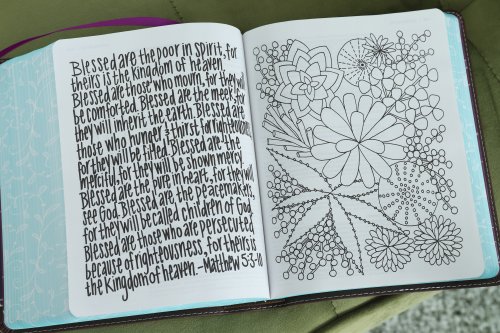 Blessed are the poor in spirit, for
theirs is the kingdom of heaven.
Blessed are those who mourn, for they will
be comforted. Blessed are the meek, for
they will inherit the earth. Blessed are
those who hunger & thirst for righteousness
for they will be filled. Blessed are the
merciful, for they will be shown mercy.
Blessed are the pure in heart, for they will
see God. Blessed are the peacemakers,
for they will be called children of God.
Blessed are those who are persecuted
because of righteousness, for theirs is
the kingdom of heaven. -Matthew 5:3-10